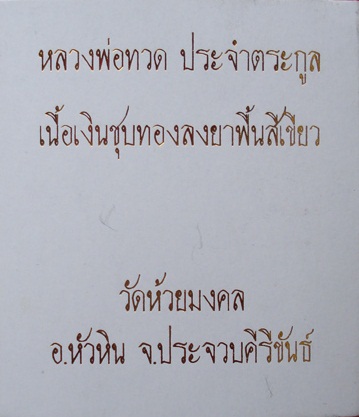 หลวงพ่อทวด ประจำตระกูล
เนื้อเงินชุบทองลงยาพื้นสีเขียว
วัดห้วยมงคล
อ.หัวหิน จ.ประจวบคีรีขันธ์